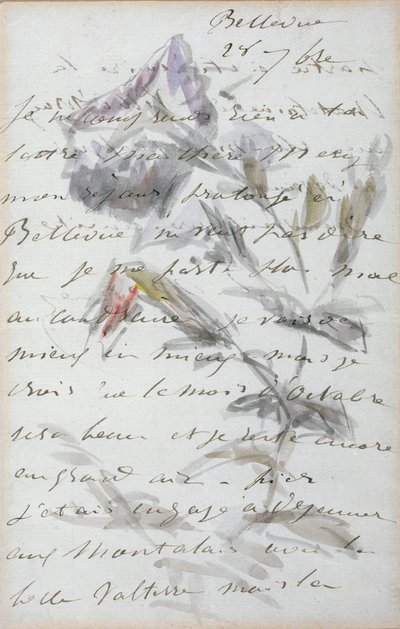 Bellevue
28 7bre
Je ne comprends rien à ta
lettre ma chère Mery
mon séjour prolongé à
Bellevue ne veut pas dire
que je me porte plus mal
au contraire je vais de
mieux en mieux mais je
crois que le mois d'Octobre
sera beau et je reste encore
au grand air - hier
j'étais engagé à déjeuner
aux Montalais avec la
belle Valtesse mais la